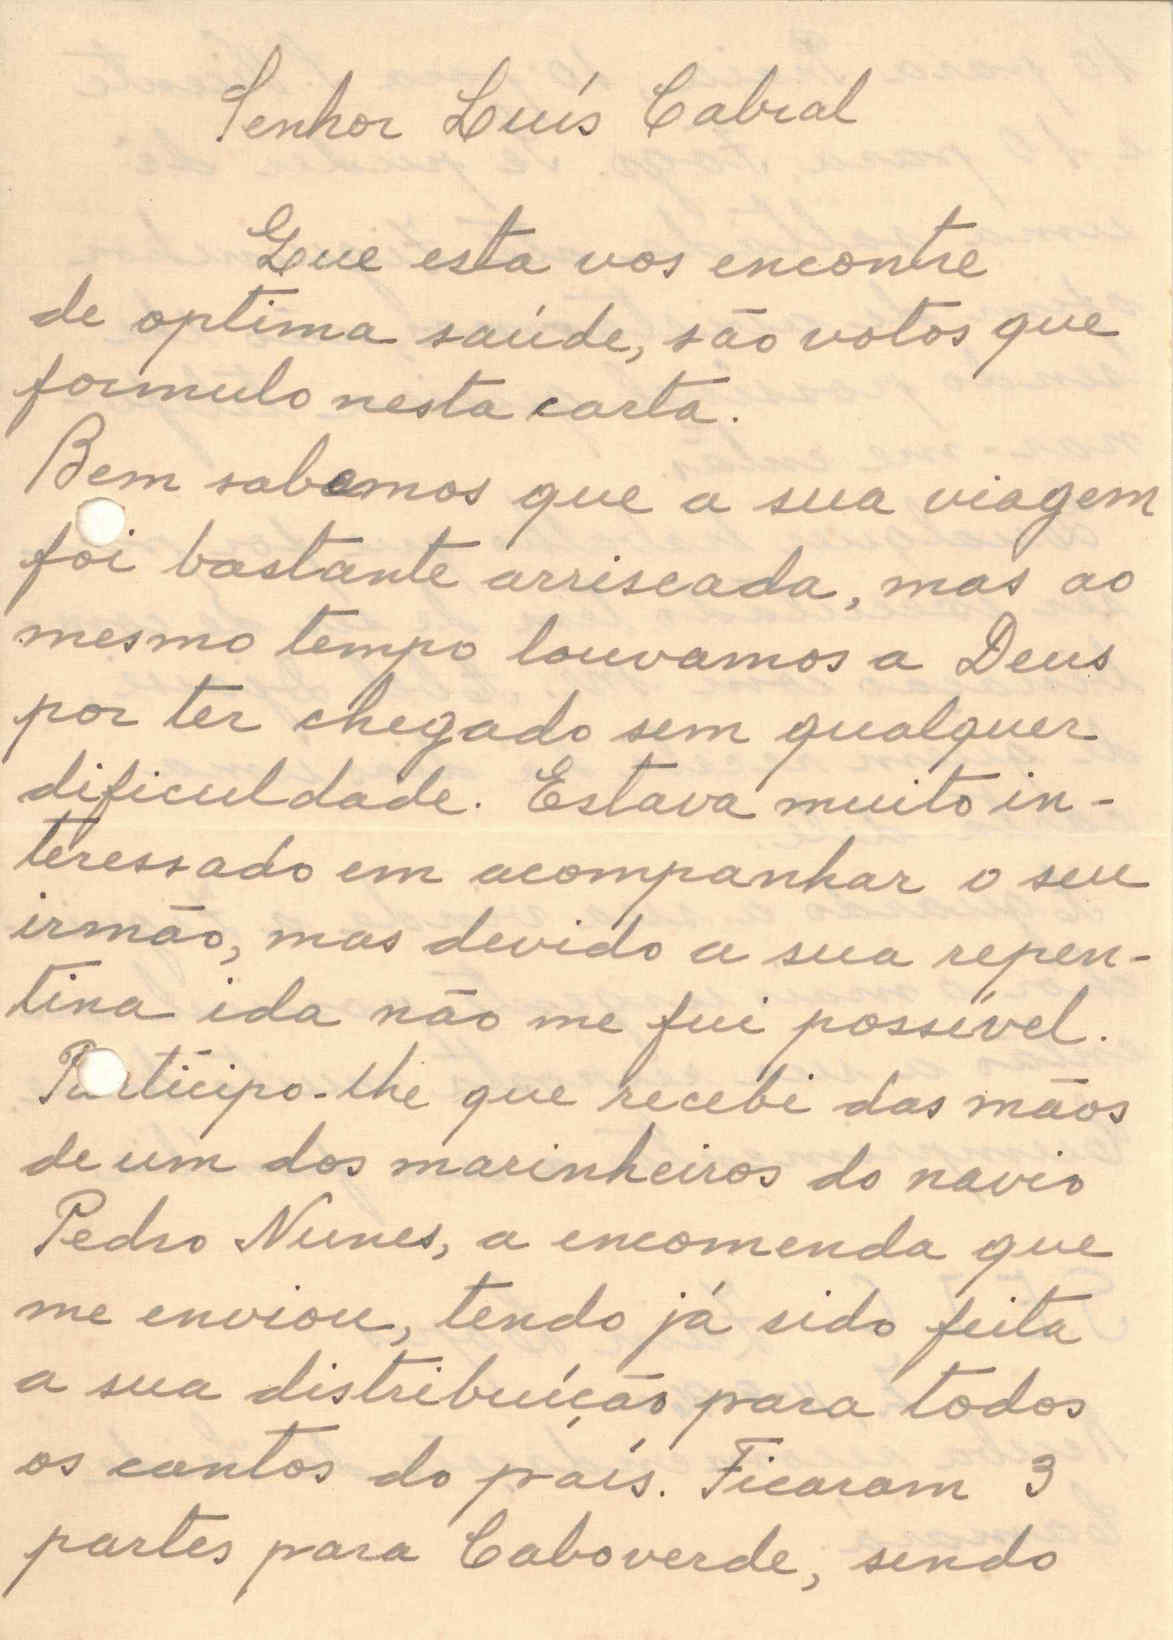 Senhor Luís Cabral
Que esta vos encontre
de optima saúde, são votos que
formulo nesta carta.
Bem sabemos que a sua viagem
foi bastante arriscada, mas ao
mesmo tempo louvamos a Deus
por ter chegado sem qualquer
dificuldade. Estava muito in-
teressado em acompanhar o seu
irmão, mas devido a sua repen-
tina ida não me fui possível.
Participo-lhe que recebi das mãos
de um dos marinheiros do navio
Pedro Nunes, a encomenda que
me enviou, tendo já sido feita
a sua distribuíção para todos
os cantos do país. Ficaram 3
partes para Caboverde, sendo